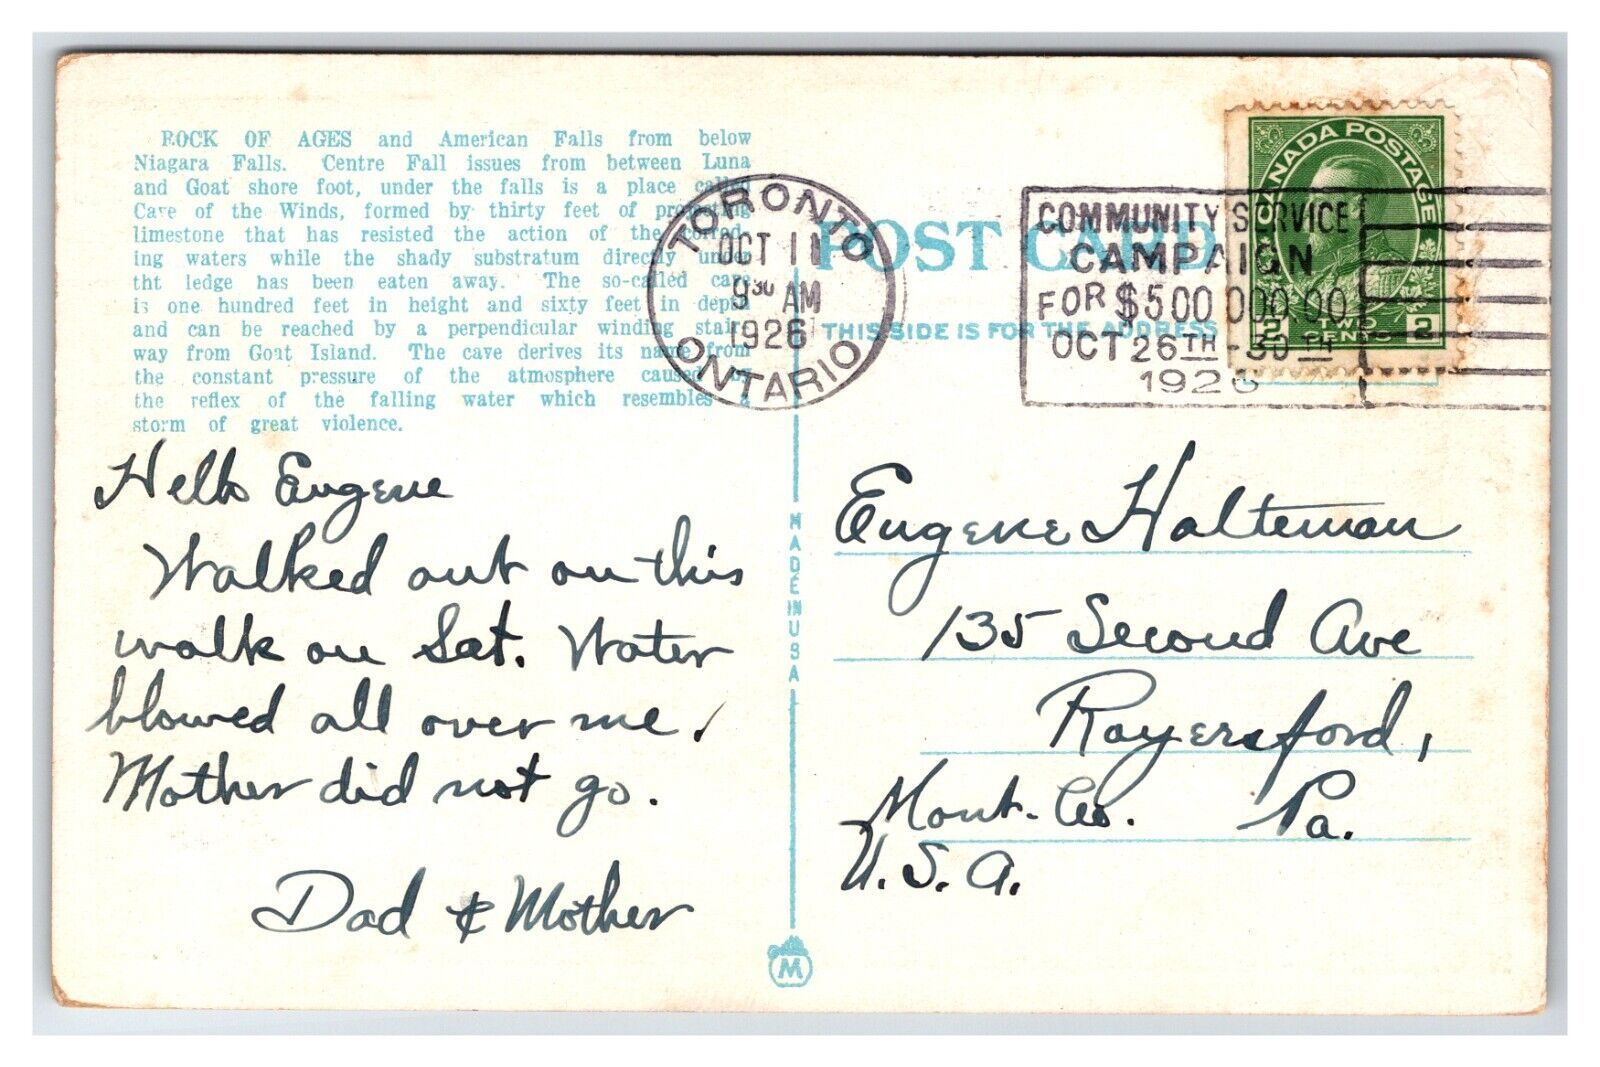 ROCK OF AGES and American Falls from below
Niagara Falls. Centre Fall issues from between Luna
and Goat shore foot, under the falls is a place called
Cave of the Winds, formed by thirty feet of projecting
limestone that has resisted the action of the corrod-
ing waters while the shady substratum directly under
tht ledge has been eaten away. The so-called cave
is one hundred feet in height and sixty feet in depth
and can be reached by a perpendicular winding stair-
way from Goat Island. The cave derives its name from
the constant pressure of the atmosphere caused by
the reflex of the falling water which resembles a
storm of great violence.
Hello Eugene
Walked out on this
walk on Sat. Water
blowed all over me.
Mother did not go.
Dad & Mother
TORONTO
OCT 11
9 30 AM
1926
ONTARIO
POST CARD
THIS SIDE IS FOR THE ADDRESS
COMMUNITY SERVICE
CAMPAIGN
FOR $500 000.00
OCT 26TH - 30TH
1926
CANADA POSTAGE
2 TWO CENTS 2
MADE IN USA
M
Eugene Halteman
135 Second Ave
Royersford,
Mont. Co. Pa.
U. S. A.